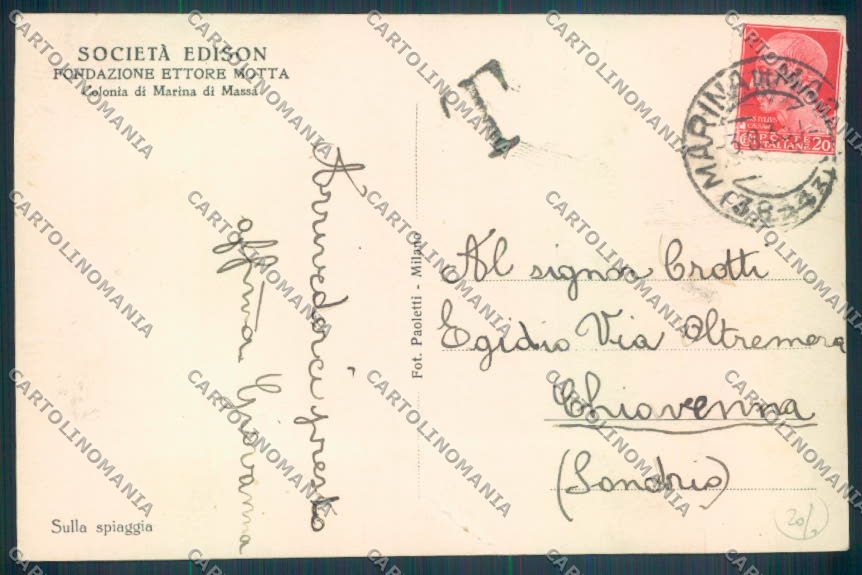 SOCIETÀ EDISON
FONDAZIONE ETTORE MOTTA
Colonia di Marina di Massa
T
MARINA DI
POSTE
ITALIANE 20
Arrivederci presto
aff.ma Giovanna
Fot. Paoletti - Milano
Al signor Crotti
Egidio Via Oltremera
Chiavenna
(Sondrio)
Sulla spiaggia
20/
CARTOLINOMANIA